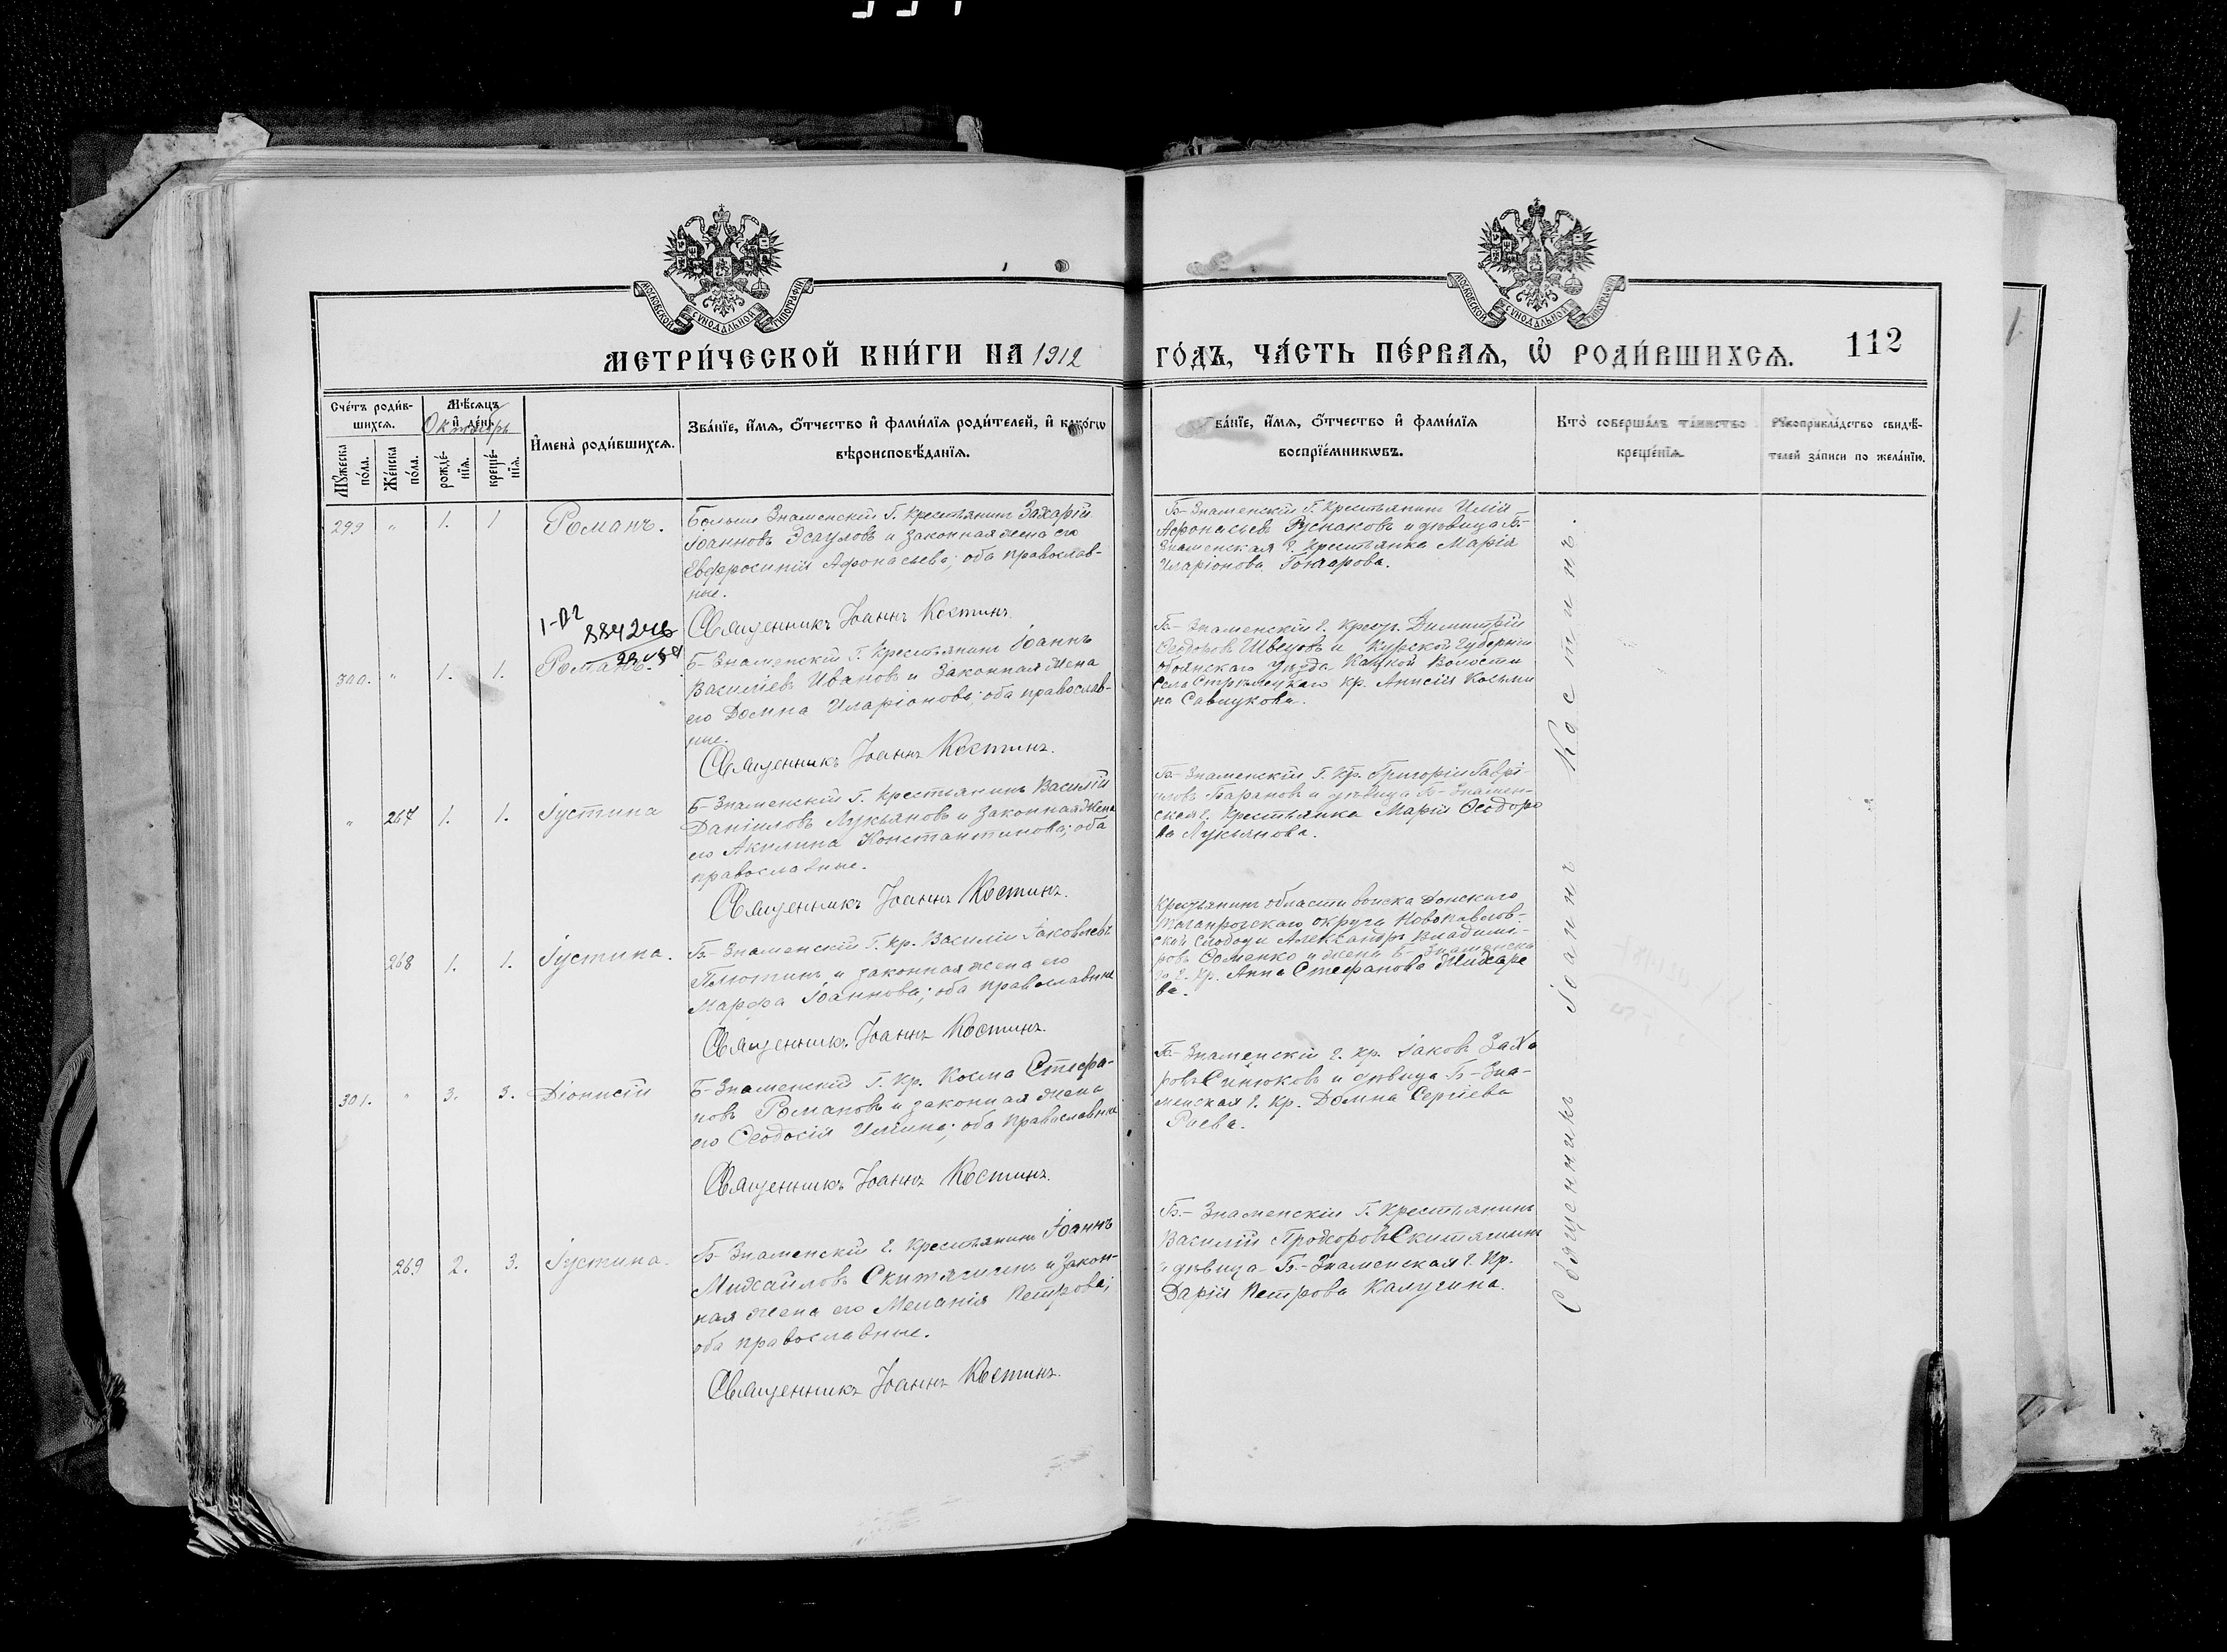 МОСКОВСКОЙ СУНОДАЛЬНОЙ ТИПОГРАФІИ
МОСКОВСКОЙ СУНОДАЛЬНОЙ ТИПОГРАФІИ
МЕТРИ́ЧЕСКОЙ КНИ́ГИ НА 1912
ГО́ДЪ, ЧА́СТЬ ПЕ́РВАѦ, Ѽ РОДИ́ВШИХСѦ.
112
Сче́тъ роди́в-
шихсѧ.
Мѣ́сѧцъ
и҆ де́нь.
Октябрь
Му́жеска
по́ла.
Же́нска
по́ла.
рожде́-
нїѧ.
креще́-
нїѧ.
И҆мена̀ роди́вшихсѧ.
Зва́нїе, и҆́мѧ, ѻ҆́тчество и҆ фами́лїѧ роди́телей, и҆ како́гѡ
вѣроисповѣ́данїѧ.
ва́нїе, и҆́мѧ, ѻ҆́тчество и҆ фами́лїѧ
воспрїе́мникѡвъ.
Кто̀ соверша́лъ та́инство
креще́нїѧ.
Рꙋкоприкла́дство свидѣ́-
телей за́писи по жела́нїю.
299 " 1. 1 Романъ.
Больше Знаменскій Г. Крестьянинъ Захарій
Іоанновъ Эсауловъ и законная жена его
Евфросинія Афонасьева; оба православ-
ные.
Священникъ Іоаннъ Костинъ.
Б-Знаменскій Г. Крестьянинъ Илія
Афонасьевъ Руснаковъ и дѣвица Б-
Знаменская Г. Крестьянка Марія
Иларіонова Гончарова.
300. " 1. 1. Романъ.
Б-Знаменскій Г. Крестьянинъ Іоаннъ
Василіевъ Ивановъ и Законная жена
его Домна Иларіонова; оба православ-
ные.
Священникъ Іоаннъ Костинъ.
Б-Знаменскій Г. Крест. Димитрій
Ѳеодоровъ Швецовъ и Курской Губерніи
Обоянскаго Уѣзда Волости
Села кр. Анисія Козьми
на
" 267 1. 1. Іустина
Б-Знаменскій Г. Крестьянинъ Василій
Даніиловъ Лукьяновъ и Законная жена
его Акилина Константинова; оба
православные.
Священникъ Іоаннъ Костинъ.
Б-Знаменскій Г. Кр. Григорій Гаврі-
иловъ Барановъ и дѣвица Б-Знамен-
ская Г. Крестьянка Марія Ѳеодоро
ва Лукьянова.
268 1. 1. Іустина.
Б-Знаменскій Г. Кр. Василій Іаковлевъ
Плютинъ и законная жена его
Марфа Іоаннова; оба православные
Священникъ Іоаннъ Костинъ.
Крестьянинъ области войска Донского
Таганрогскаго округа Новопавлов-
ской Слободы Александръ Владимі-
ровъ и жена Б-Знаменска
го Г. Кр. Анна Стефанова Жихаре
ва.
301. " 3. 3. Діонисій
Б-Знаменскій Г. Кр. Косма Стефа-
новъ Романовъ и законная жена
его Ѳеодосія Илiина; оба православные
Священникъ Іоаннъ Костинъ.
Б-Знаменскій Г. кр. Іаковъ Заха
ровъ Синюковъ и дѣвица Б-Зна-
менская Г. Кр. Домна Сергіева
Раева.
269 2. 3. Іустина.
Б-Знаменскій Г. Крестьянинъ Іоаннъ
Михаиловъ Скитягинъ и закон-
ная жена его Меланія Петрова;
оба православные.
Священникъ Іоаннъ Костинъ.
Б-Знаменскій Г. Крестьянинъ
Василій Прохоровъ Скитягинъ
и дѣвица Б-Знаменская Г. Кр.
Дарія Петрова Калугина.
Священникъ Іоаннъ Костинъ.